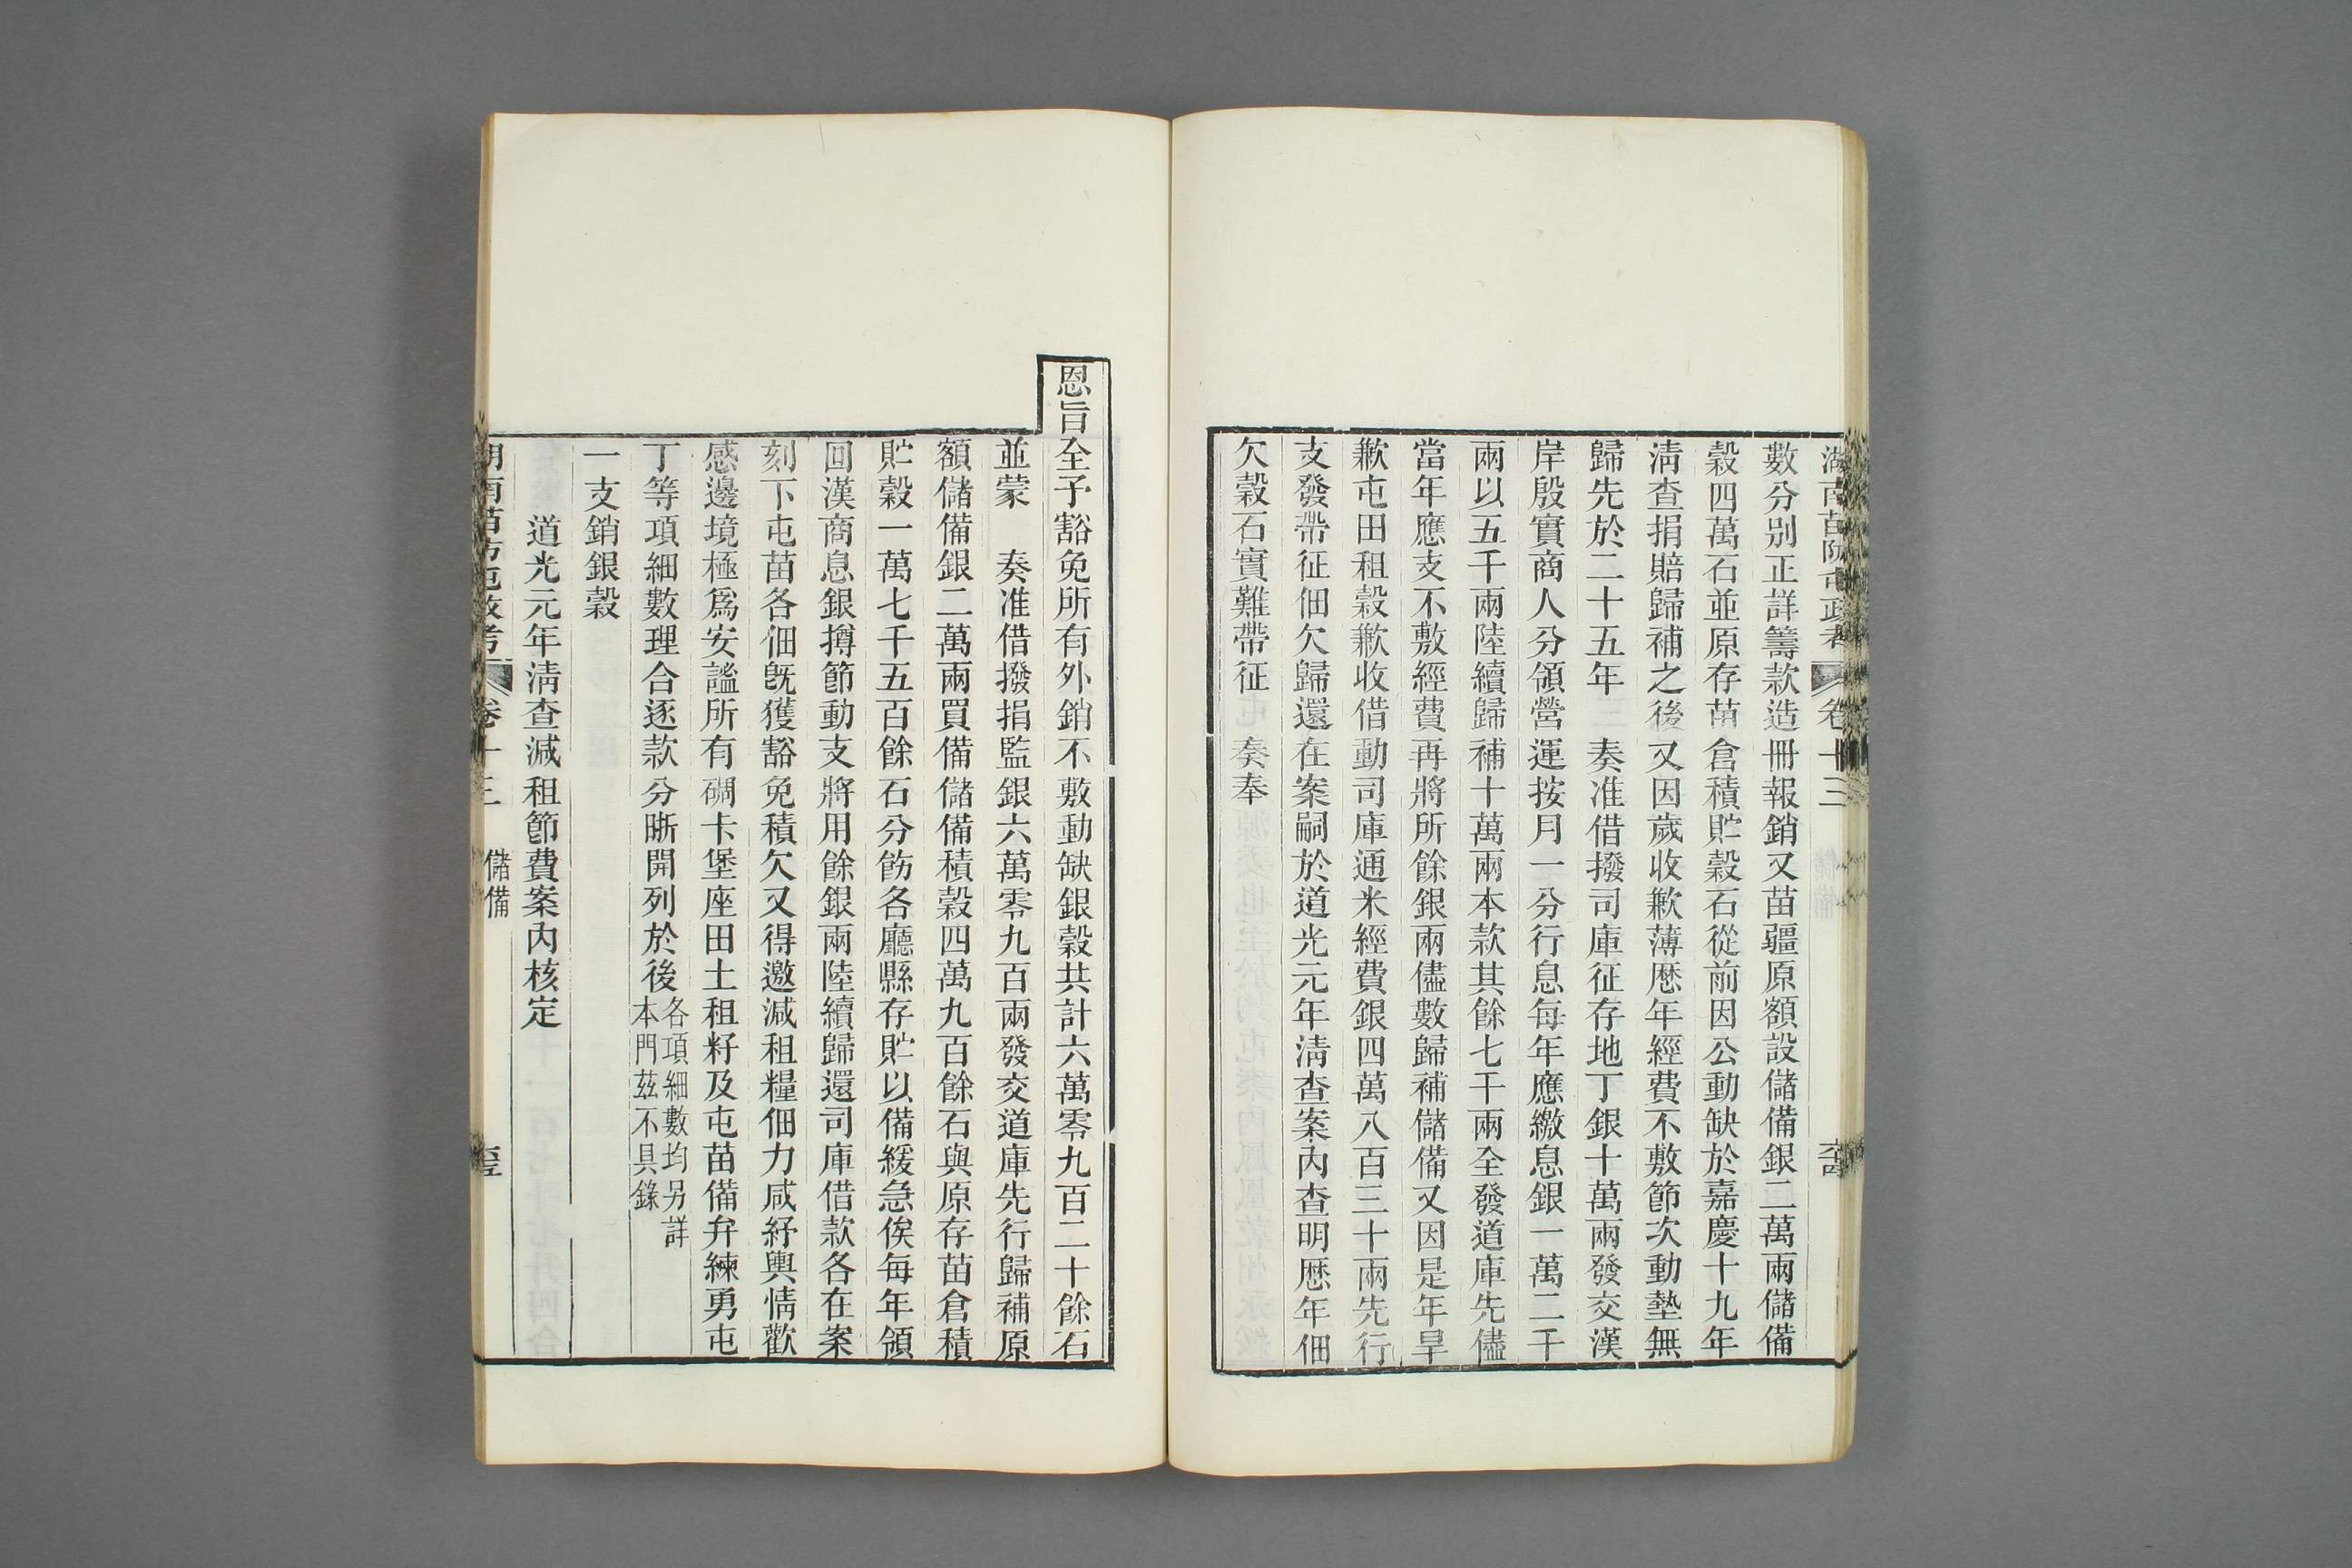 湖南苗防屯政考 卷十三 儲備
數分別正詳籌款造冊報銷又苗疆原額設儲備銀二萬兩儲備
穀四萬石並原存苗倉積貯穀石從前因公動缺於嘉慶十九年
淸查捐賠歸補之後又因歲收歉薄歷年經費不敷節次動墊無
歸先於二十五年 奏准借撥司庫征存地丁銀十萬兩發交漢
岸殷實商人分領營運按月一分行息每年應繳息銀一萬二千
兩以五千兩陸續歸補十萬兩本款其餘七千兩全發道庫先儘
當年應支不敷經費再將所餘銀兩儘數歸補儲備又因是年旱
歉屯田租穀歉收借動司庫通米經費銀四萬八百三十兩先行
支發帶征佃欠歸還在案嗣於道光元年淸查案內查明歷年佃
欠穀石實難帶征 奏奉
恩旨全予豁免所有外銷不敷動缺銀穀共計六萬零九百二十餘石
並蒙 奏准借撥捐監銀六萬零九百兩發交道庫先行歸補原
額儲備銀二萬兩買備儲備積穀四萬九百餘石與原存苗倉積
貯穀一萬七千五百餘石分飭各廳縣存貯以備緩急俟每年領
回漢商息銀撙節動支將用餘銀兩陸續歸還司庫借款各在案
刻下屯苗各佃旣獲豁免積欠又得邀減租糧佃力咸紓輿情歡
感邊境極爲安謐所有碉卡堡座田土租籽及屯苗備弁練勇屯
丁等項細數理合逐款分晰開列於後各項細數均另詳本門茲不具錄
一支銷銀穀
道光元年淸查減租節費案內核定
湖南苗防屯政考 卷十三 儲備